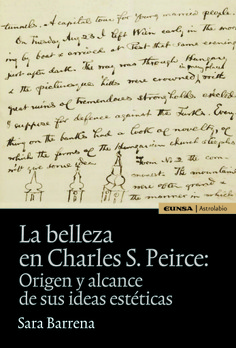 tunnels. — A capital tour for young married people.
On Tuesday Aug 23 I left Wien early in the morn
ing by boat & arrived at Pest that same evening
just after dark. The way was through Hungary
& the picturesque hills were crowned with
great ruins of tremendous strongholds erected
I suppose for defence against the Turks. Every
thing on the banks had a look of novelty, of
which the forms of the Hungarian church steeples
will give you some idea
From the
connect. The mountains
were often grand &
the manner in which
EUNSA | Astrolabio
La belleza
en Charles S. Peirce:
Origen y alcance
de sus ideas estéticas
Sara Barrena